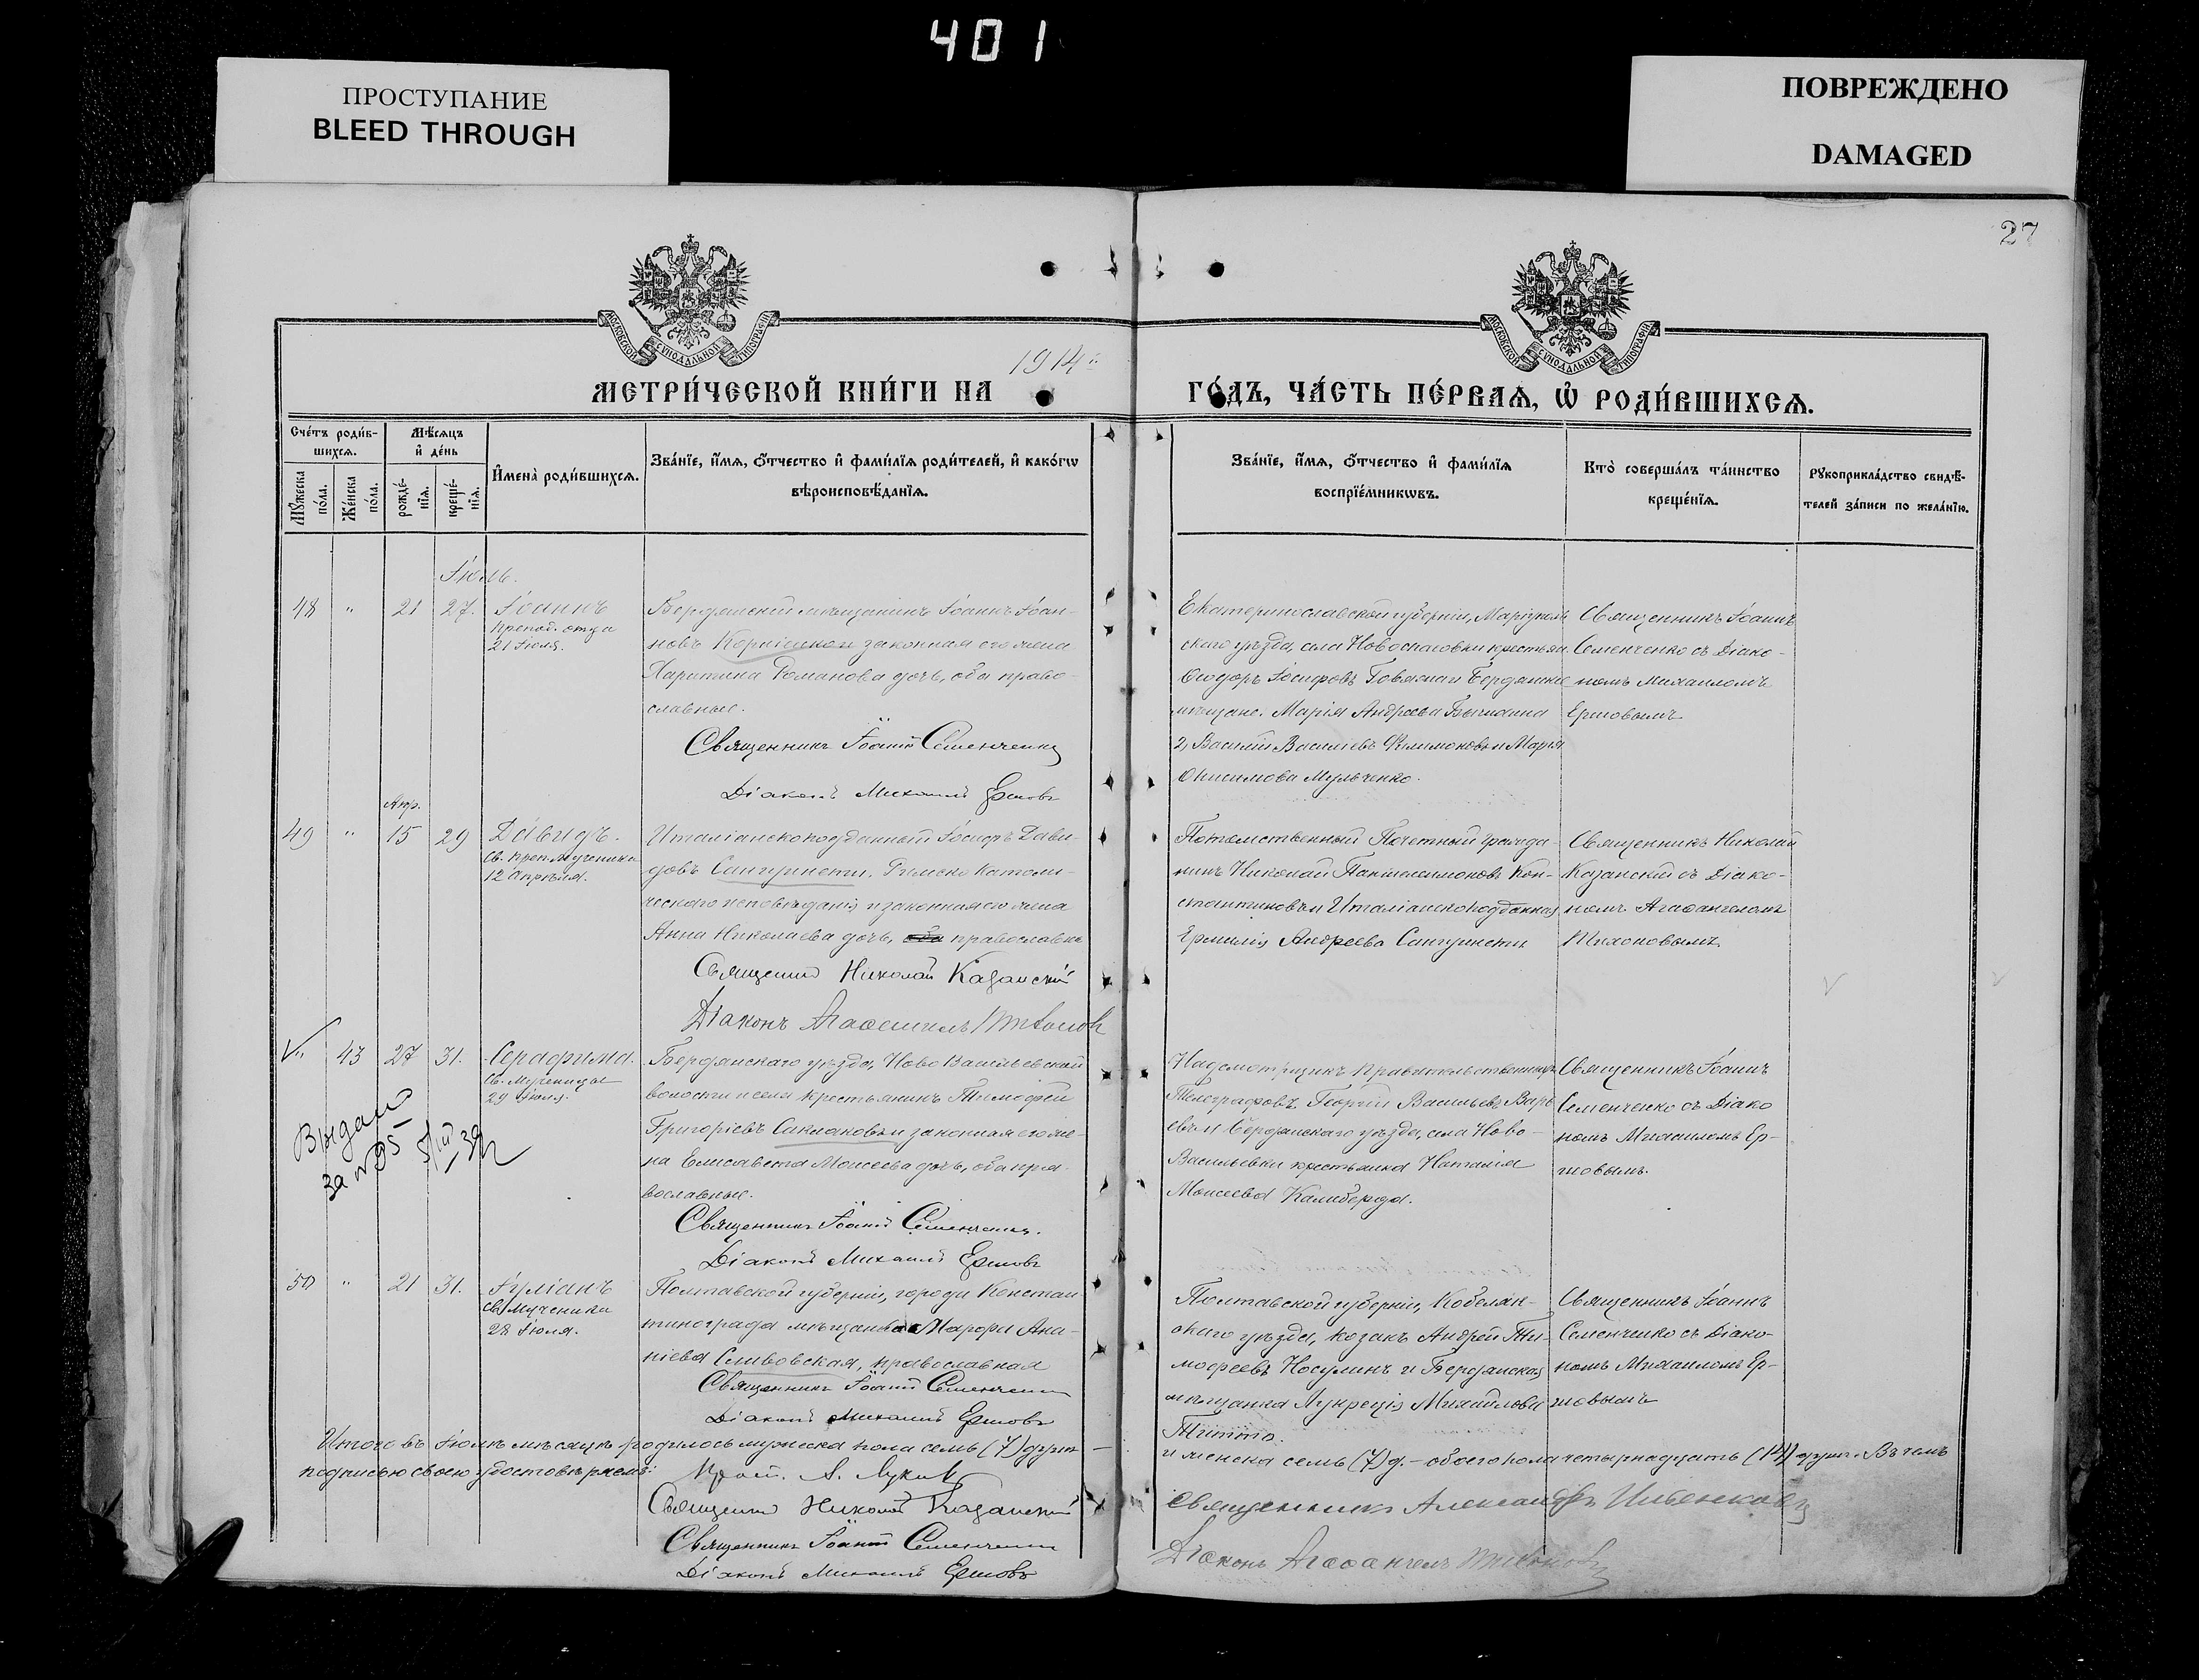 401
ПРОСТУПАНИЕ
BLEED THROUGH
ПОВРЕЖДЕНО
DAMAGED
27
МОСКОВСКОЙ СУНОДАЛЬНОЙ ТИПОГРАФІИ
МОСКОВСКОЙ СУНОДАЛЬНОЙ ТИПОГРАФІИ
1914
МЕТРИ́ЧЕСКОЙ КНИ́ГИ НА
ГО́ДЪ, ЧА́СТЬ ПЕ́РВАѦ, Ѡ҆ РОДИ́ВШИХСѦ.
Сче́тъ роди́в-
шихсѧ.
Мꙋжеска по́ла.
Же́нска по́ла.
Мѣ́сѧцъ
и҆ де́нь
рожде́-нїѧ.
креще́-нїѧ.
И҆мена̀ роди́вшихсѧ.
Зва́нїе, и҆́мѧ, ѻ҆́тчество и҆ фами́лїѧ роди́телей, и҆ како́гѡ
вѣроисповѣ́данїѧ.
Зва́нїе, и҆́мѧ, ѻ҆́тчество и҆ фами́лїѧ
воспрїе́мникѡвъ.
Кто̀ соверша́лъ та́инство
креще́нїѧ.
Рꙋкоприкла́дство свидѣ́-
телей за́писи по жела́нїю.
Іюль.
48 " 21 27. Іоаннъ
Препод. отца
21 Іюля.
Бердянскій мѣщанинъ Іоаннъ Іоан-
новъ законная его жена
Харитина Романова дочь, оба право-
славные.
Священникъ Іоаннъ Семенченко
Діаконъ Михаилъ Ершовъ
Екатеринославской губерніи, Маріуполь
скаго уѣзда, села Новоспасовки крестьян.
Ѳеодоръ Іосифовъ и Бердянска
мѣщане. Марія Андреева
2, Василій Василіевъ Филимоновъ и Марія
Онисимова Мульченко.
Священникъ Іоаннъ
Семенченко съ Діако-
номъ Михаиломъ
Ершовымъ
Апр.
49 " 15 29 Давидъ.
Св. Преп. Мученика
12 Апрѣля.
Италіанскоподданный Іосифъ Дави-
довъ Сангуинети, Римско Католи-
ческаго исповѣданія и законная его жена
Анна Николаева дочь, православна
Священникъ Николай Казанскій
Діаконъ Агаѳангелъ Тихоновъ
Потомственный Почетный гражда-
нинъ Николай Пантелеимоновъ Кон-
стантиновъ и Италіанскоподданная
Ермилія Андреева Сангуинети
Священникъ Николай
Казанскій съ Діако-
номъ Агаѳангеломъ
Тихоновымъ
" 43 27 31. Серафима.
Св. Мученицы
29 Іюля.
Бердянскаго уѣзда, Ново Васильевской
волости и села крестьянинъ Тимоѳей
Григоріевъ Саклаковъ и законная его же-
на Елисавета Моисеева дочь, оба пра-
вославные.
Священникъ Іоаннъ Семенченко.
Діаконъ Михаилъ Ершовъ
Надсмотрщикъ Правительственныхъ
Телеграфовъ Георгій Васильевъ
евъ и Бердянскаго уѣзда, села Ново-
Васильевки крестьянка Наталія
Моисеева Калиберда.
Священникъ Іоаннъ
Семенченко съ Діако
номъ Михаиломъ Ер-
шовымъ.
Выдано
за №95
50 " 21 31. Іуліанъ
Св. Мученика
28 Іюля.
Полтавской губерніи, города Констан
тинограда мѣщанка Марѳа Ана-
ніева Сливовская, православная
Священникъ Іоаннъ Семенченко
Діаконъ Михаилъ Ершовъ
Полтавской губерніи, Кобеляк-
скаго уѣзда, козакъ Андрей Ти-
моѳеевъ Носулинъ и Бердянская
мѣщанка Лукреція Михайлова
Священникъ Іоаннъ
Семенченко съ Діако-
номъ Михаиломъ Ер-
шовымъ
Итого въ Іюлѣ мѣсяцѣ родилось мужеска пола семь (7) душъ
и женска семь (7) д. – обоего пола четырнадцать (14) душъ. Въ чемъ
подписью своею удостовѣряемъ:
Священникъ Николай Казанскій
Священникъ Іоаннъ Семенченко
Діаконъ Михаилъ Ершовъ
Священникъ Александръ
Діаконъ Агаѳангелъ Тихоновъ